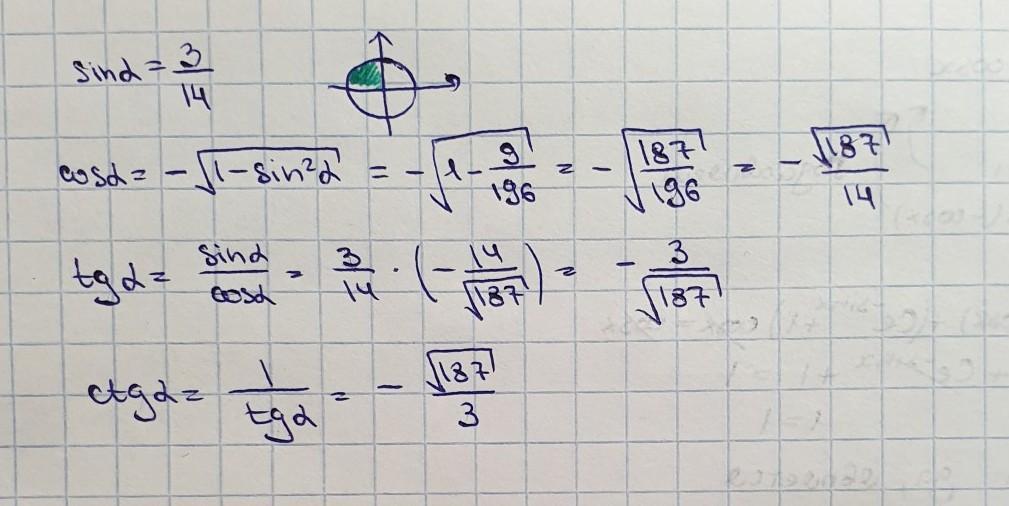 sinα = 3/14
cosα = -√(1-sin²α) = -√(1-9/196) = -√(187/196) = -√187/14
tgα = sinα/cosα = 3/14 · (-14/√187) = -3/√187
ctgα = 1/tgα = -√187/3